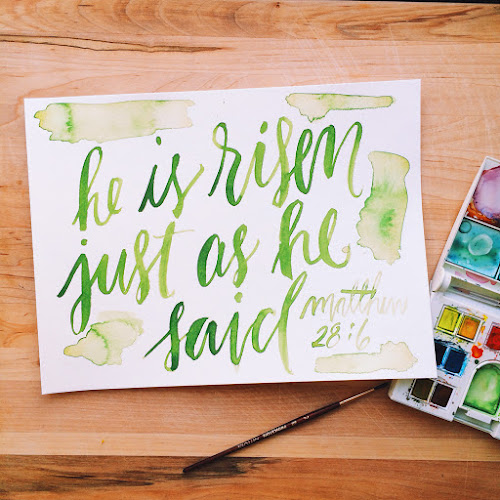 he is risen
just as he
said
matthew
28:6